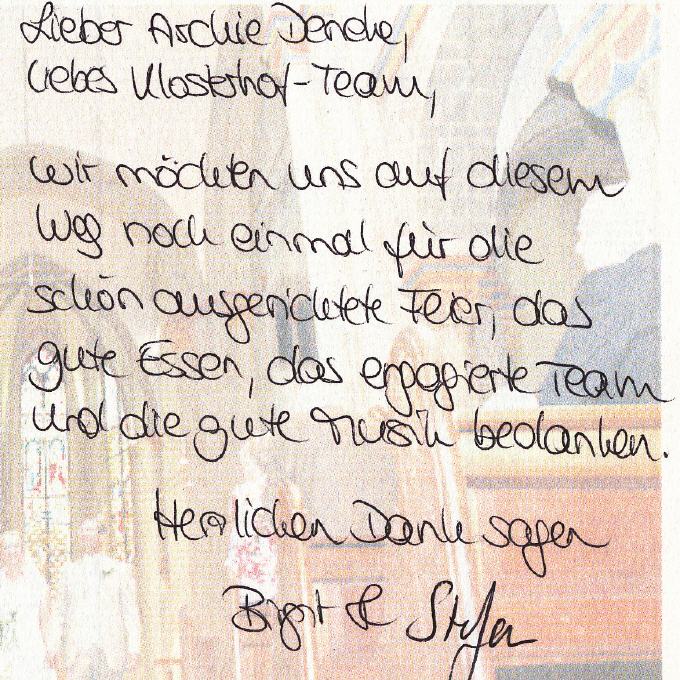 Lieber Archie Deneke,
liebes Klosterhof-Team,
wir möchten uns auf diesem
Weg noch einmal für die
schön ausgerichtete Feier, das
gute Essen, das engagierte Team
und die gute Musik bedanken.
Herzlichen Dank sagen
Birgit & Stefan